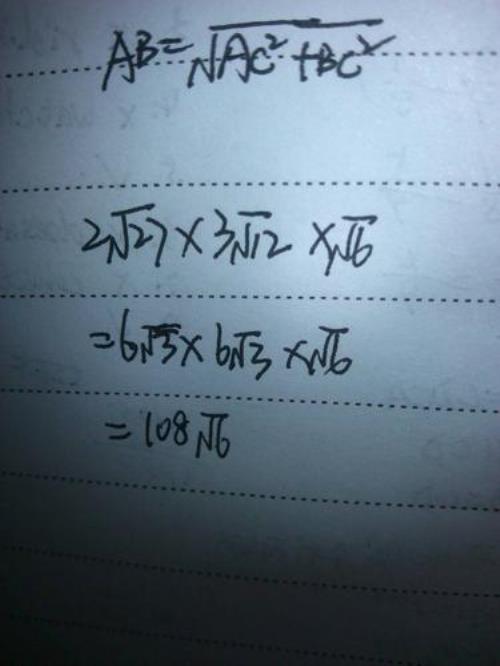 AB=√AC²+BC²
2√27×3√12×√6
=6√3×6√3×√6
=108√6